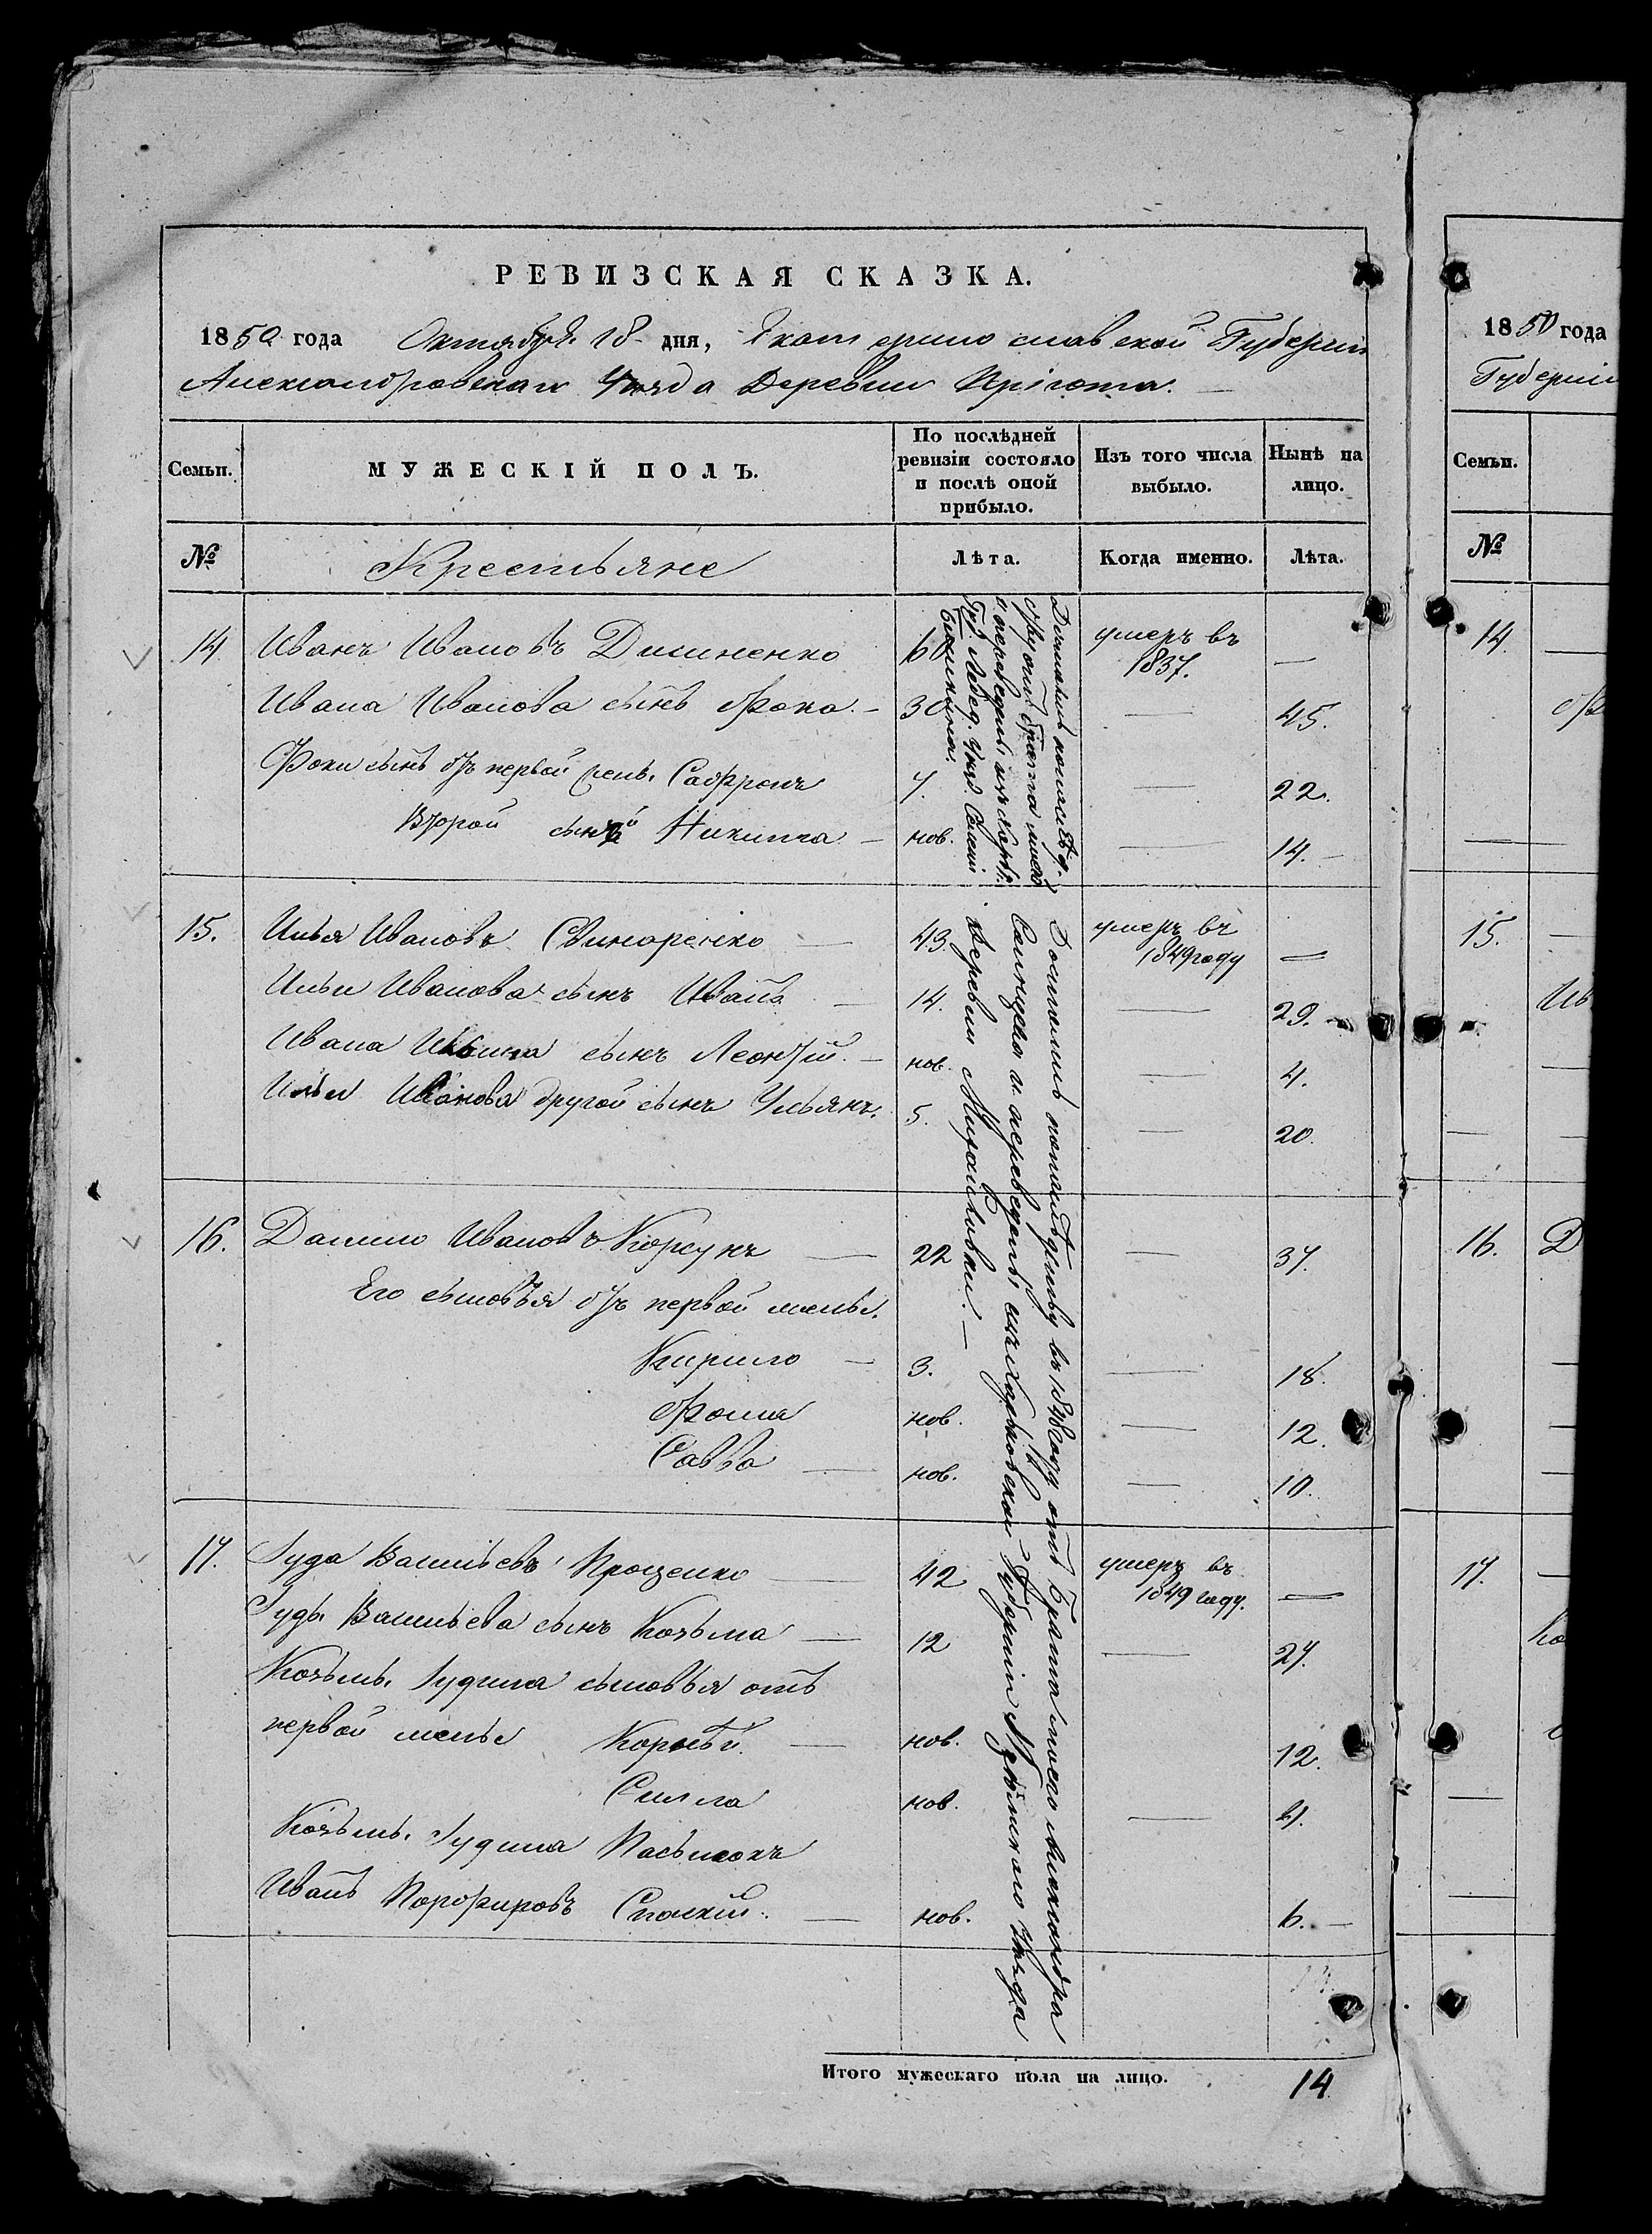 РЕВИЗСКАЯ СКАЗКА.
1850 года Октября 18 дня, Екатеринославской Губерніи
Александровскаго Уезда Деревни Пріюта.
Семьи.
МУЖЕСКІЙ ПОЛЪ.
По послѣдней ревизіи состояло и послѣ оной прибыло.
Изъ того числа выбыло.
Нынѣ на лицо.
№
Крестьяне
Лѣта.
Когда именно.
Лѣта.
14 Иванъ Ивановъ 60 умеръ въ 1837. —
Ивана Иванова сынъ Фока — 30 — 45.
Фоки сынъ отъ первой жены Сафронъ 7. — 22.
Второй сынъ Никита — нов. — 14. —
15. Илья Ивановъ Свинаренко — 43 умеръ въ 1849 году —
Ильи Иванова сынъ Иванъ — 14. — 29.
Ивана Ильина сынъ Леонтій. — нов. — 4.
Ильи Иванова другой сынъ Ульянъ. 5. — 20.
16. Данило Ивановъ Корсунъ — 22 — 37.
Его сыновья отъ первой жены.
Кирило — 3. — 18.
Фома нов. — 12.
Савва — нов. — 10.
17. Іуда Васильевъ Проценко — 42 умеръ въ 1849 году. —
Іуды Васильева сынъ Козьма — 12 — 27.
Козьмы Іудина сыновья отъ
первой жены Корнѣй. — нов. 12.
Сила нов. — 4.
Козьмы Іудина Пасынокъ
Иванъ Порфировъ — нов. 6. —
Достались по наслѣд.
отъ брата моего
и переведены изъ Харьк.
Губ. Лебед. Уез. Селенія
Достались по наслѣдству въ году отъ Брата моего Александра
и переведены изъ Харьковской Губерніи Уезда
Деревни Михайловки. —
Итого мужескаго пола на лицо. 14
1850 года
Губерніи
Семьи.
№
14. —
15. —
Ив
16. Д
17. —
Ко